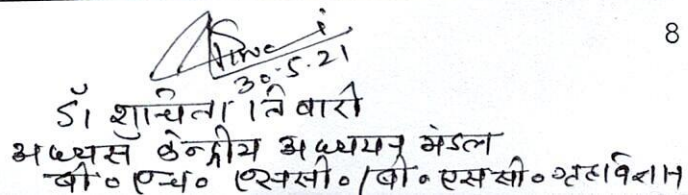 8
30.5.21
डॉ शुचिता तिवारी
अध्यक्ष केन्द्रीय अध्ययन मंडल
बी० एच० एससी० / बी० एससी० गृहविज्ञान